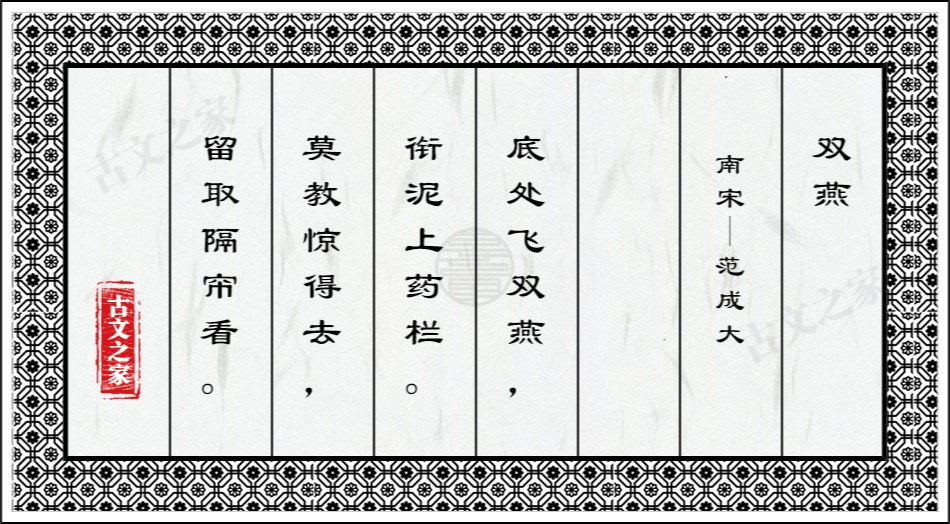 双燕
南宋—范成大
底处飞双燕，
衔泥上药栏。
莫教惊得去，
留取隔帘看。
古文之家
古文之家
古文之家